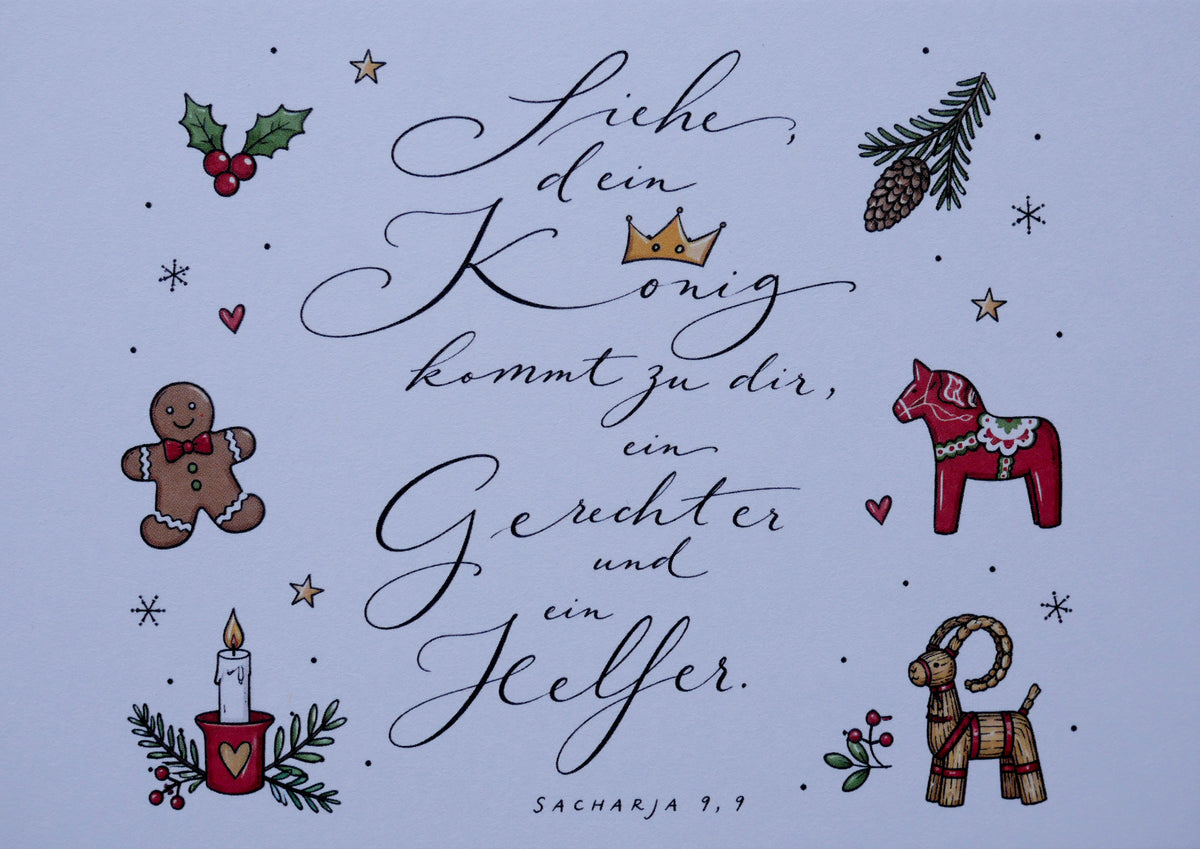 Siehe,
dein
König
kommt zu dir,
ein
Gerechter
und
ein
Helfer.
SACHARJA 9, 9